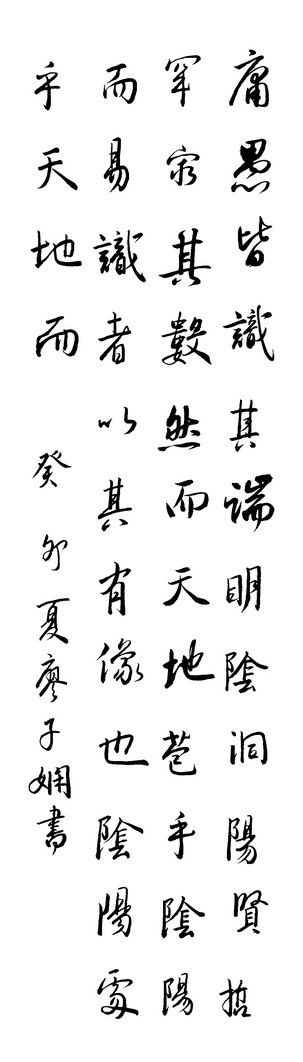 庸愚皆識其端明陰洞陽賢哲
罕窮其數然而天地苞乎陰陽
而易識者以其有像也陰陽處
乎天地而
癸卯夏廖子嫻書